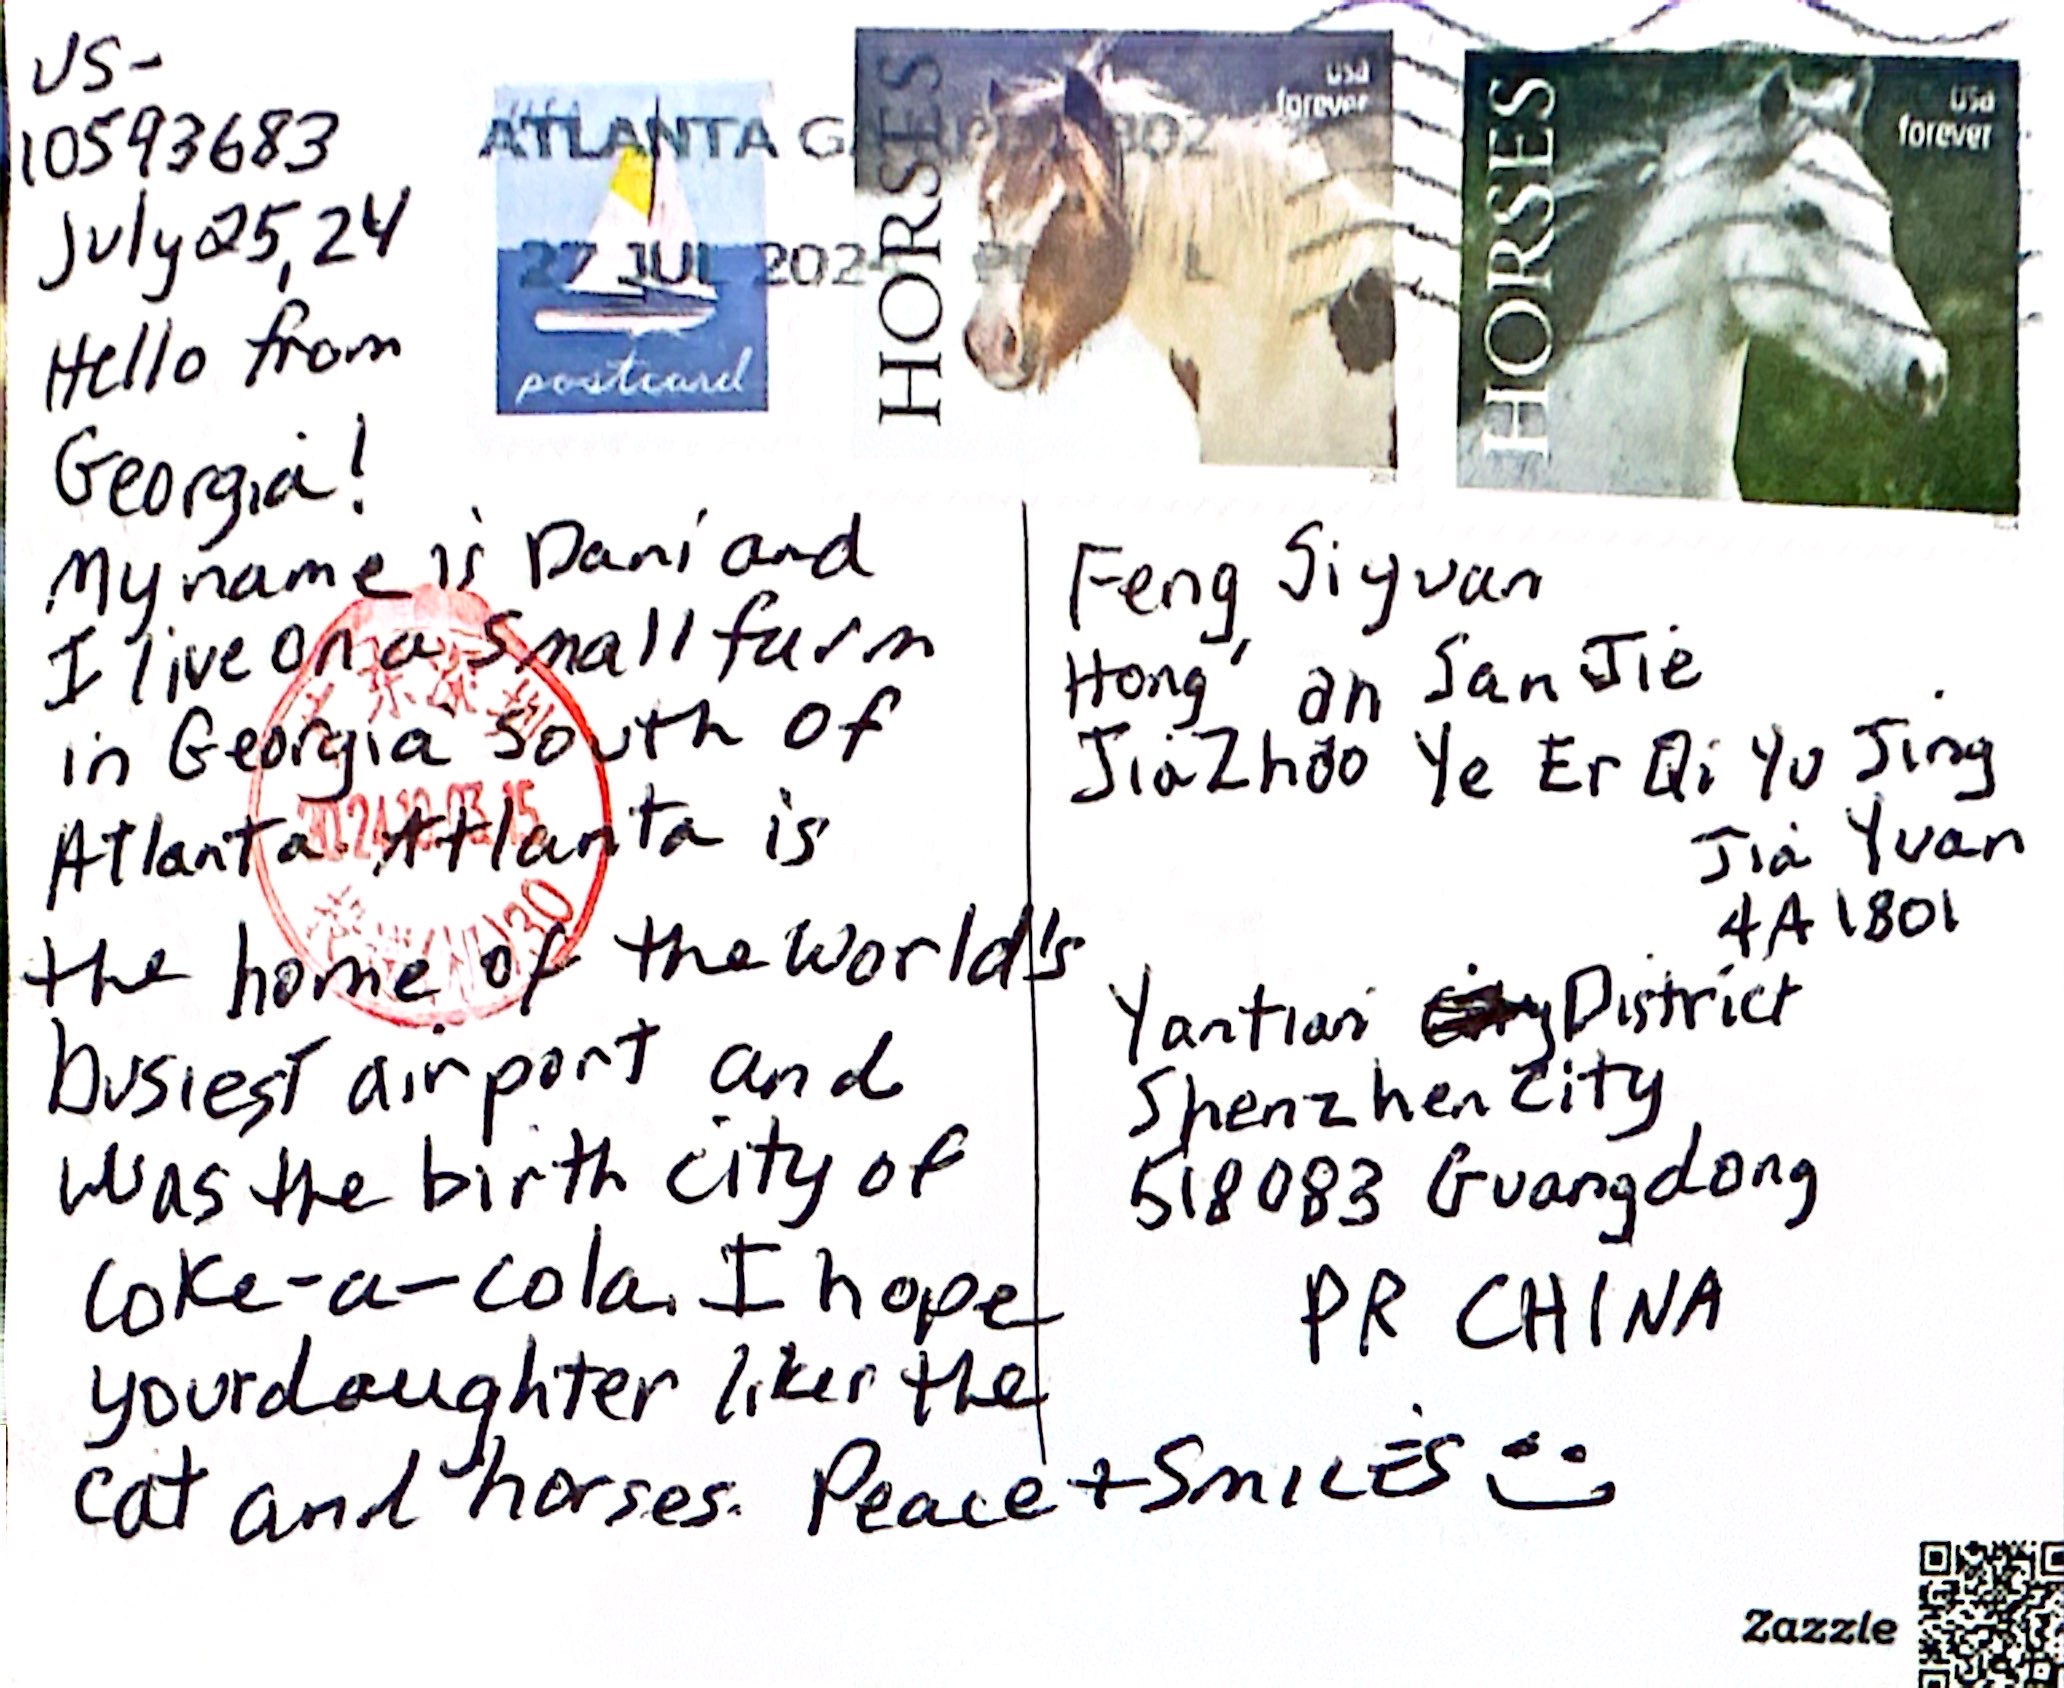 US-
10593683
July 25, 24
Hello from
Georgia!
My name is Dani and
I live on a small farm
in Georgia South of
Atlanta. Atlanta is
the home of the world's
busiest airport and
was the birth city of
Coke-a-cola. I hope
your daughter likes the
cat and horses. Peace + SMILES
ATLANTA
27 JUL 202
postcard
HORSES
usa
forever
HORSES
usa
forever
Feng Siyuan
Hong' an San Jie
JiaZhao Ye Er Qi Yu Jing
Jia Yuan
4A 1801
Yantian District
Shenzhen City
518083 Guangdong
PR CHINA
Zazzle